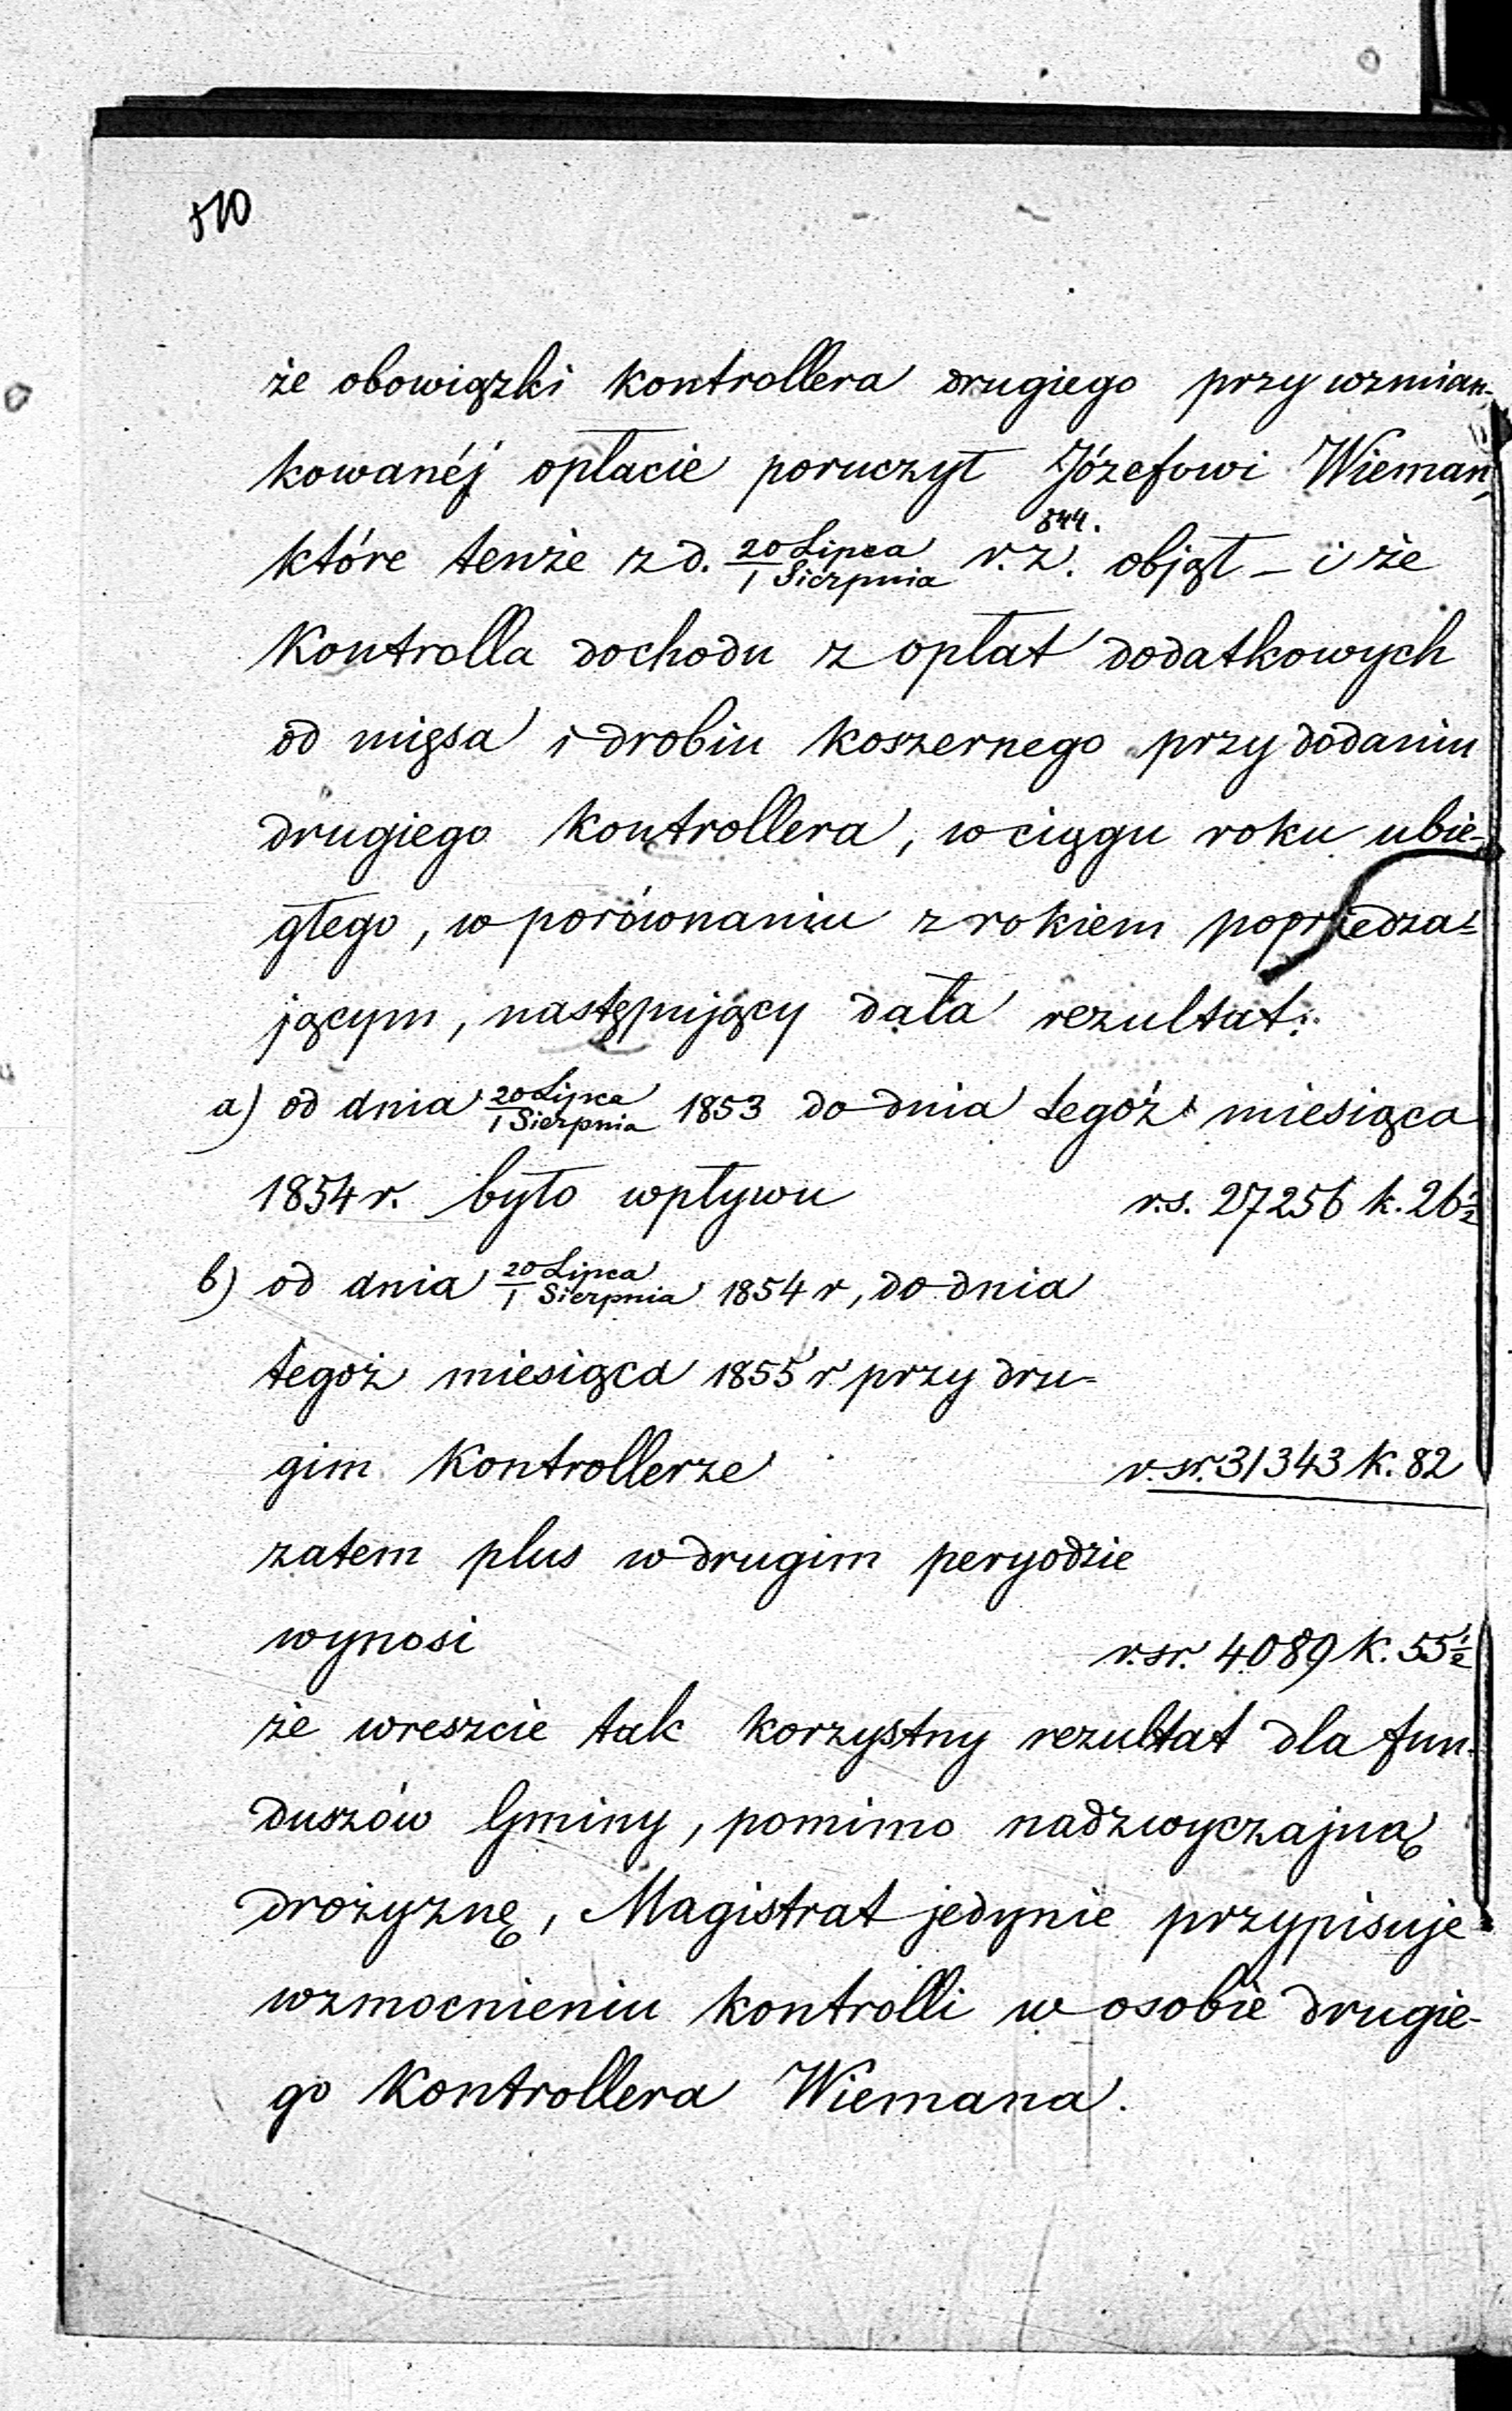 510
że obowiązki kontrollera drugiego przy wzmian-
kowanéj opłacie poruczył Józefowi Wieman,
844.
które tenże z d. 20 Lipca / 1 Sierpnia r. z. objął – i że
Kontrolla dochodu z opłat dodatkowych
od mięsa i drobiu koszernego przy dodaniu
drugiego kontrollera, w ciągu roku ubie-
głego, w porównaniu z rokiem poprzedza-
jącym, następujący dała rezultat:
a) od dnia 20 Lipca / 1 Sierpnia 1853 do dnia tegóż miesiąca
1854 r. było wpływu r.s. 27256 k. 26 1/2
b) od dnia 20 Lipca / 1 Sierpnia 1854 r, do dnia
tegoż miesiąca 1855 r przy dru-
gim Kontrollerze r. sr. 31343 k. 82
zatem plus w drugim peryodzie
wynosi r. sr. 4089 k. 55 1/2
że wreszcie tak korzystny rezultat dla fun-
duszów Gminy, pomimo nadzwyczajną
drożyznę, Magistrat jedynie przypisuje
wzmocnieniu kontrolli w osobie drugie-
go Kontrollera Wiemana.